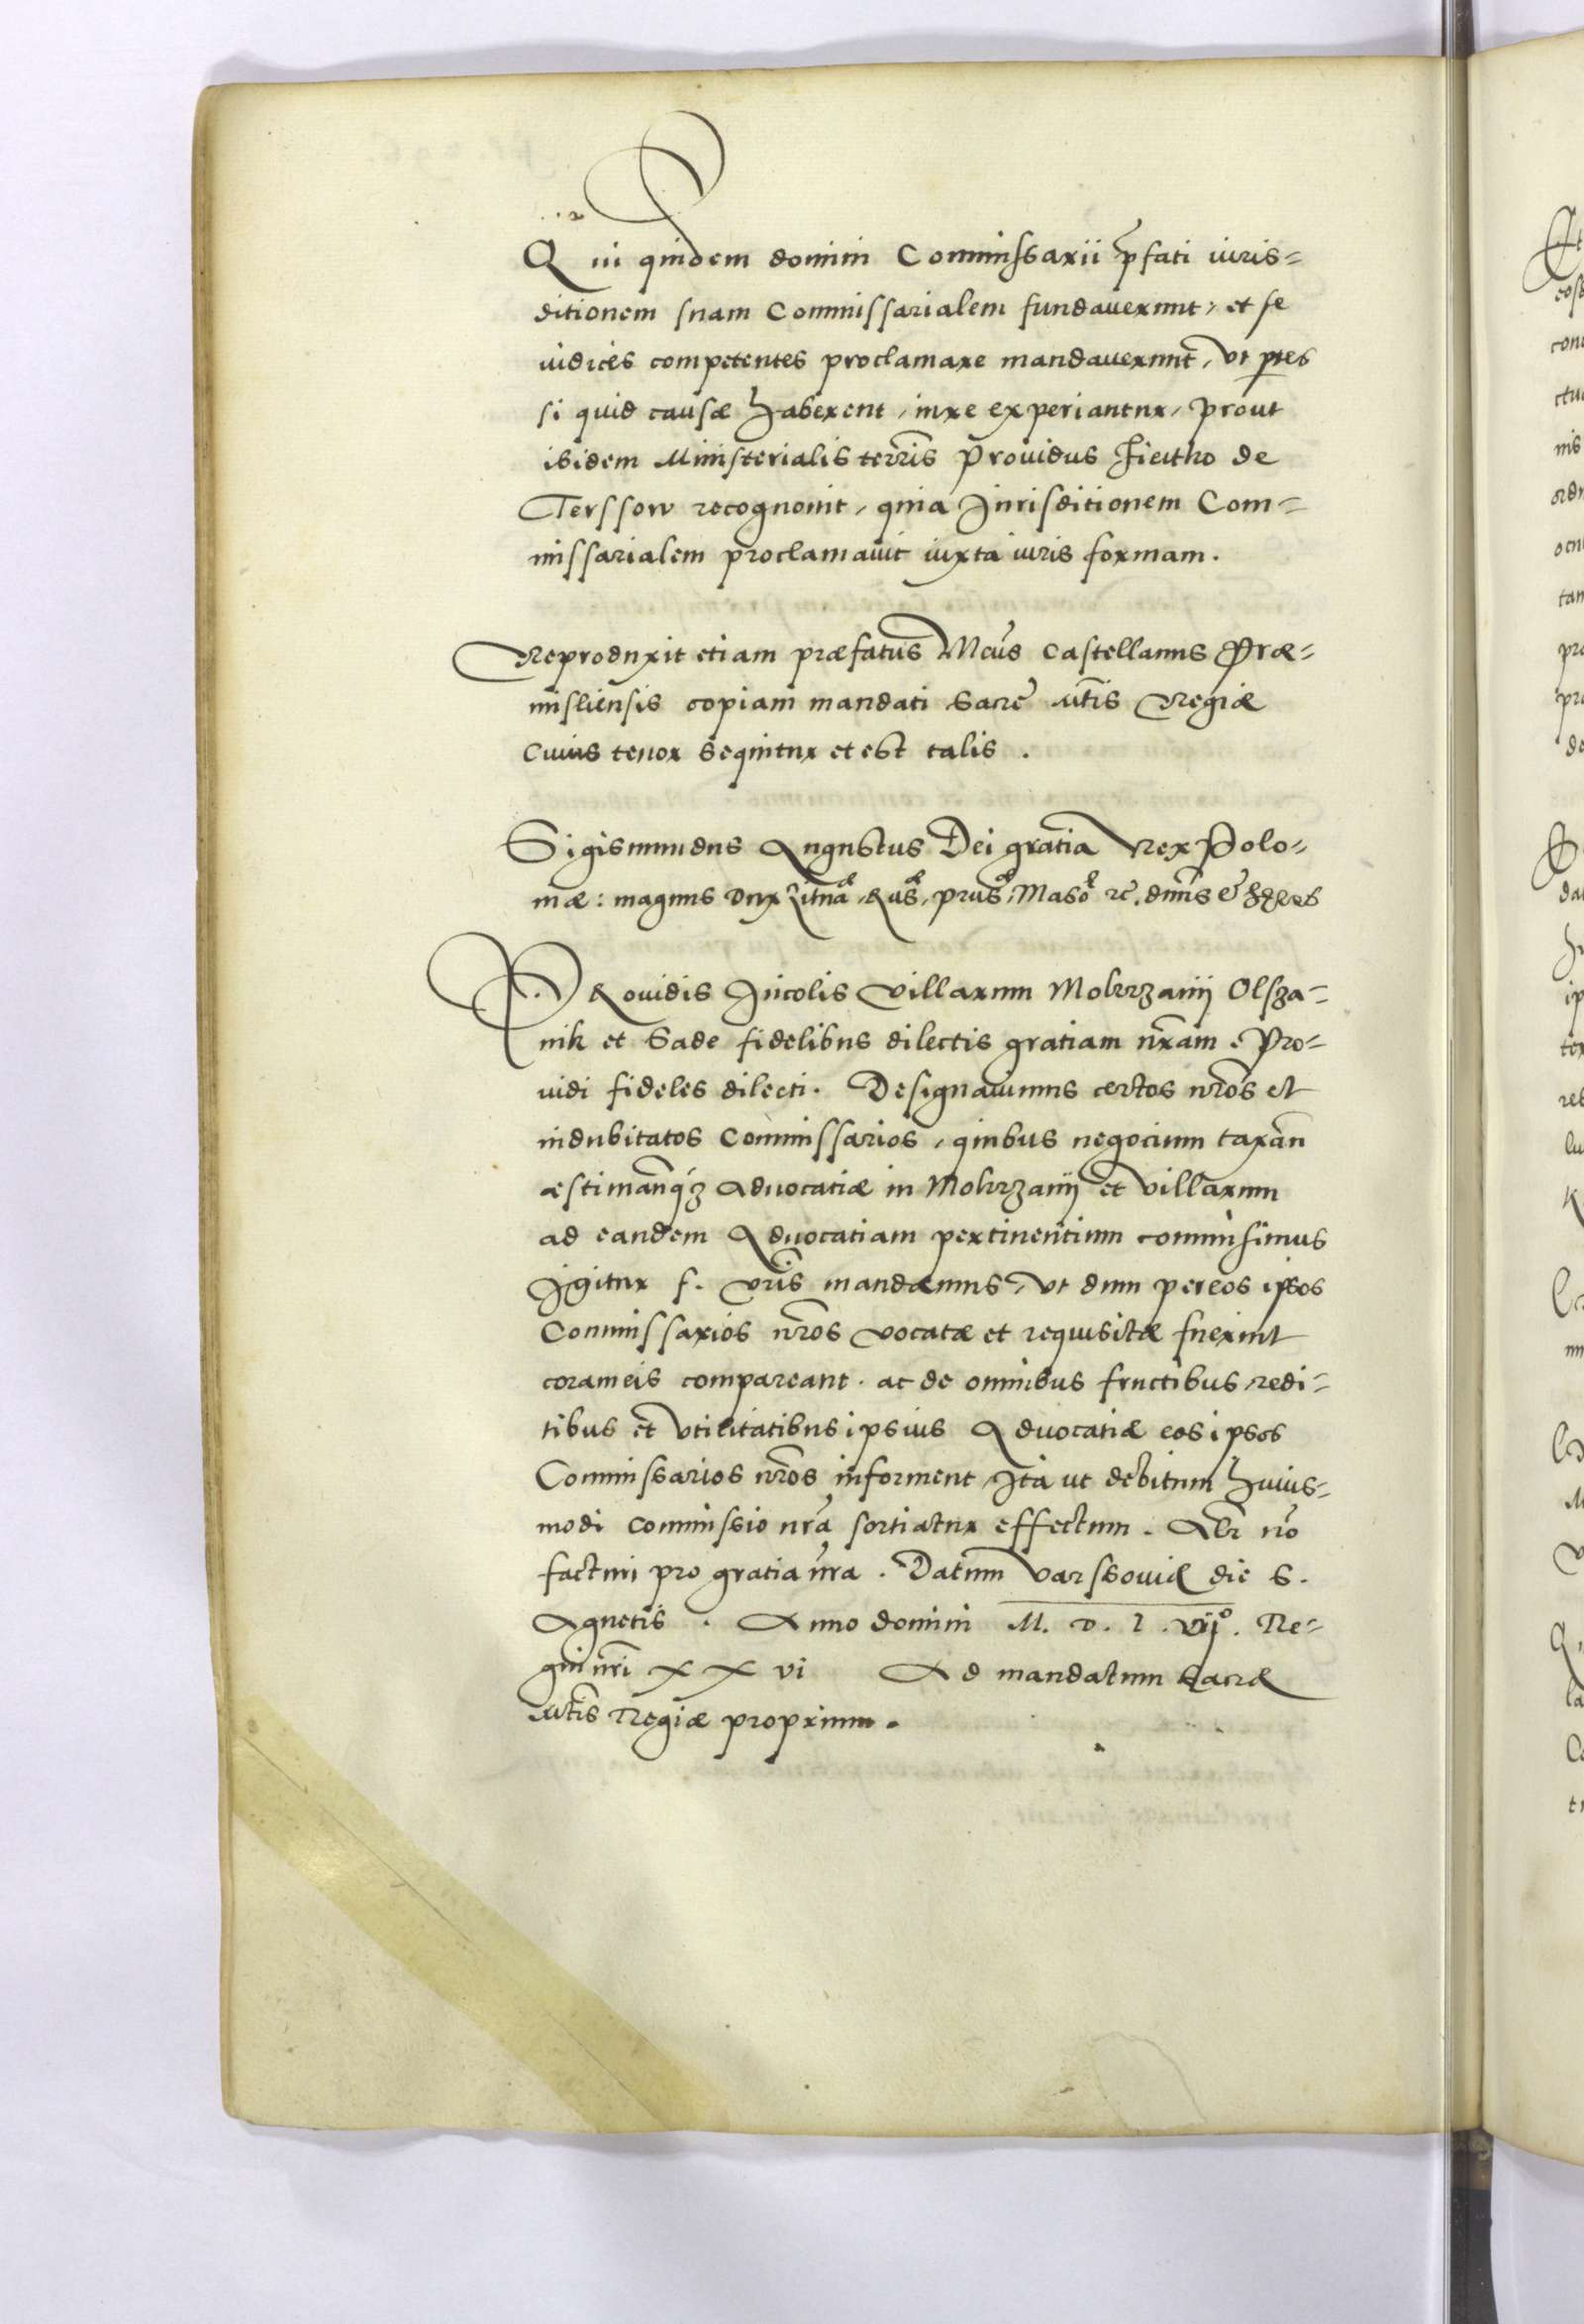 Qui quidem domini Commissarii p̄fati iuris=
ditionem suam Commissarialem fundauerunt, et se
iudices competentes proclamare mandauerunt, vt ptes
si quid causæ haberent, iure experiantur, prout
ibidem Ministerialis terr̄is prouidus Fiettko de
Terssow recognouit, quia Jurisditionem Com=
missarialem proclamauit iuxta iuris formam.
Reproduxit etiam præfatus Mcūs Castellanus Præ=
misliensis copiam mandati Sacrę Mtīs Regiæ
Cuius tenor sequitur et est talis.
Sigismundus Augustus Dei gratia Rex Polo=
niæ: magnus Dux Litua͞æ, Rus͞æ, prus͞æ, Maso͞æ ꝛc. dn̄us & hęres
PRouidis Incolis Villarum Mokrzanÿ Olsza=
nik et Sade fidelibus dilectis gratiam nr̄am. Pro=
uidi fideles dilecti. Designauimus certos nr̄os et
indubitatos Commissarios, quibus negocium taxan̄
æstiman̄qȝ Aduocatiæ in Mokrzanÿ et Villarum
ad eandem Aduocatiam pertinentium commisimus
Igitur f. vr̄is mandamus, vt dum per eos ipsos
Commissarios nr̄os vocatæ et requisitæ fuerint
coram eis compareant. ac de omnibus fructibus, redi=
tibus et vtilitatibus ipsius Aduocatiæ eos ipsos
Commissarios nr̄os informent, Ita ut debitum huius=
modi commissio nr̄a sortiatur effectum. Alr̄ nō
facturi pro gratia nr̄a. Datum Varssouiæ die S.
Agnetis. Anno domini M. D. L. vijº. Re=
gni nr̄i XX vi Ad mandatum Sacræ
Mtīs Regiæ proprium.